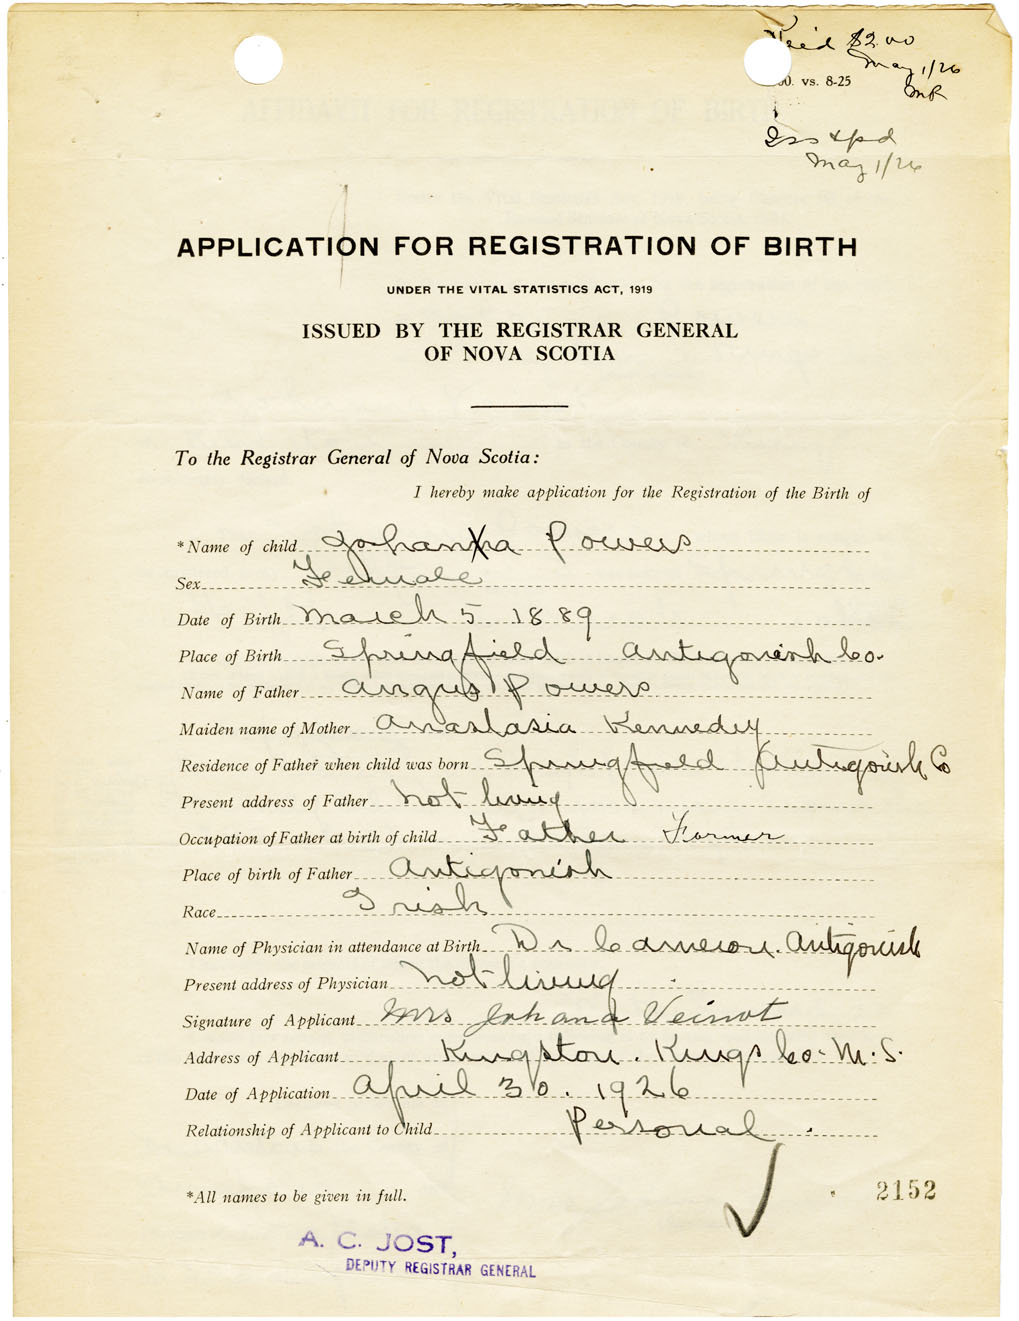 Rec'd $2.00
May 1/26
00. vs. 8-25
MR
Iss & pd
May 1/26
APPLICATION FOR REGISTRATION OF BIRTH
UNDER THE VITAL STATISTICS ACT, 1919
ISSUED BY THE REGISTRAR GENERAL
OF NOVA SCOTIA
To the Registrar General of Nova Scotia:
I hereby make application for the Registration of the Birth of
*Name of child Johanna Powers
Sex Female
Date of Birth March 5 1889
Place of Birth Springfield Antigonish Co.
Name of Father Angus Powers
Maiden name of Mother Anastasia Kennedey
Residence of Father when child was born Springfield Antigonish Co
Present address of Father Not living
Occupation of Father at birth of child Father Farmer
Place of birth of Father Antigonish
Race Irish
Name of Physician in attendance at Birth Dr Cameron. Antigonish
Present address of Physician Not living
Signature of Applicant Mrs Johana Veinot
Address of Applicant Kingston. Kings Co. N. S.
Date of Application April 30. 1926
Relationship of Applicant to Child Personal
*All names to be given in full.
2152
A. C. JOST,
DEPUTY REGISTRAR GENERAL